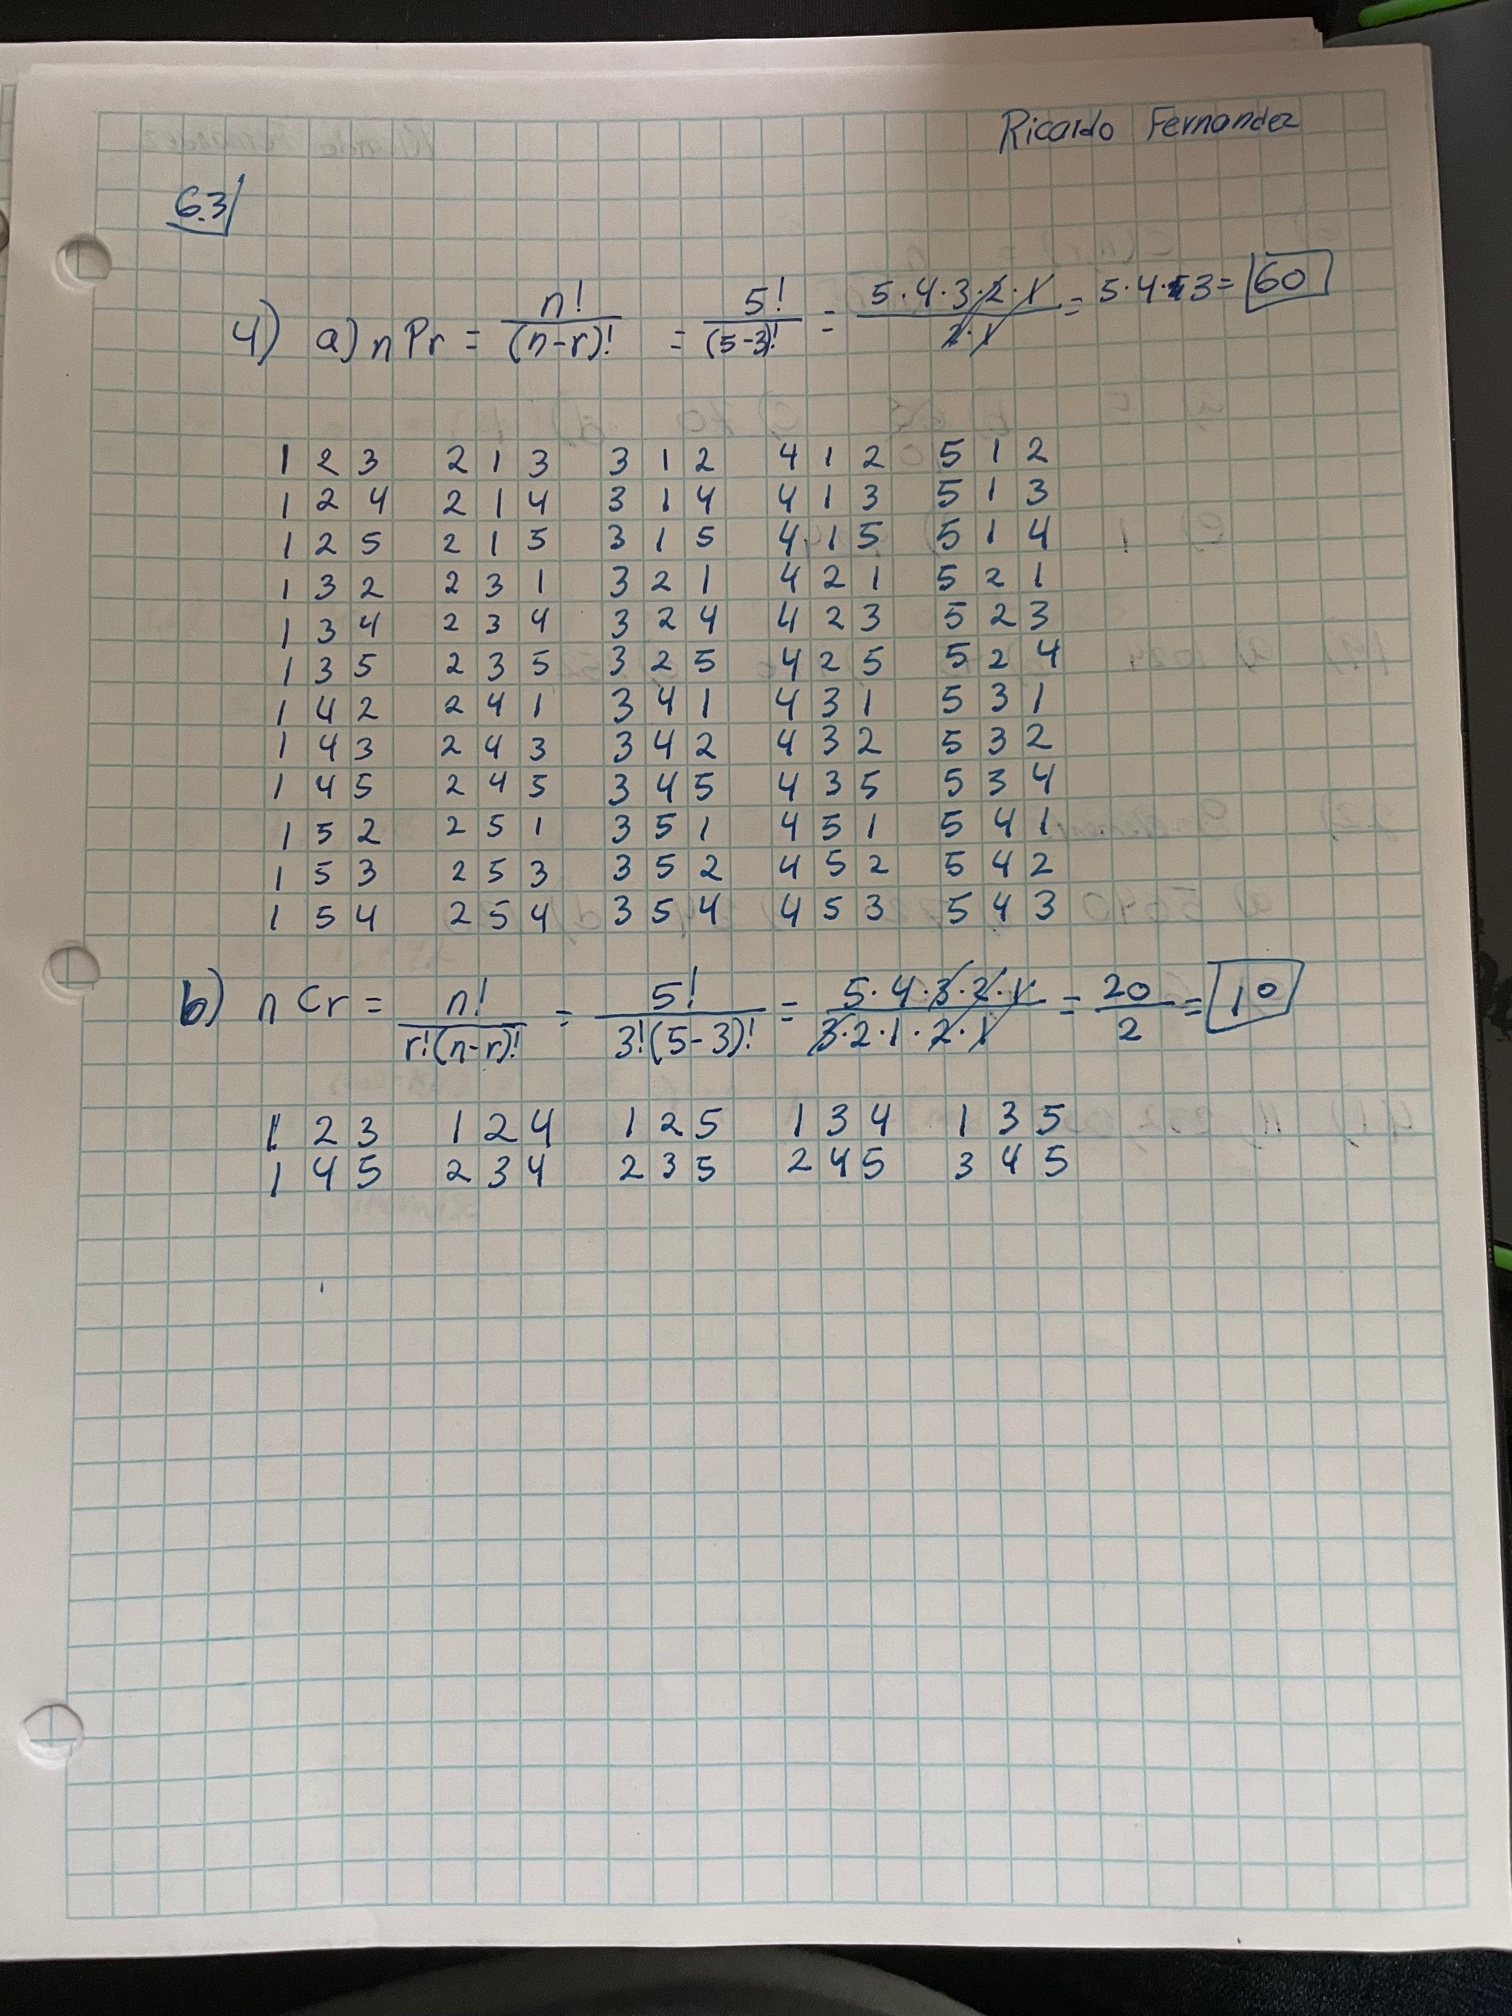 Ricardo Fernandez
6.3
4) a) nPr = n! / (n-r)! = 5! / (5-3)! = 5·4·3·2·1 / 2·1 = 5·4·3 = 60
1 2 3 2 1 3 3 1 2 4 1 2 5 1 2
1 2 4 2 1 4 3 1 4 4 1 3 5 1 3
1 2 5 2 1 5 3 1 5 4 1 5 5 1 4
1 3 2 2 3 1 3 2 1 4 2 1 5 2 1
1 3 4 2 3 4 3 2 4 4 2 3 5 2 3
1 3 5 2 3 5 3 2 5 4 2 5 5 2 4
1 4 2 2 4 1 3 4 1 4 3 1 5 3 1
1 4 3 2 4 3 3 4 2 4 3 2 5 3 2
1 4 5 2 4 5 3 4 5 4 3 5 5 3 4
1 5 2 2 5 1 3 5 1 4 5 1 5 4 1
1 5 3 2 5 3 3 5 2 4 5 2 5 4 2
1 5 4 2 5 4 3 5 4 4 5 3 5 4 3
b) nCr = n! / r!(n-r)! = 5! / 3!(5-3)! = 5·4·3·2·1 / 3·2·1·2·1 = 20 / 2 = 10
1 2 3 1 2 4 1 2 5 1 3 4 1 3 5
1 4 5 2 3 4 2 3 5 2 4 5 3 4 5